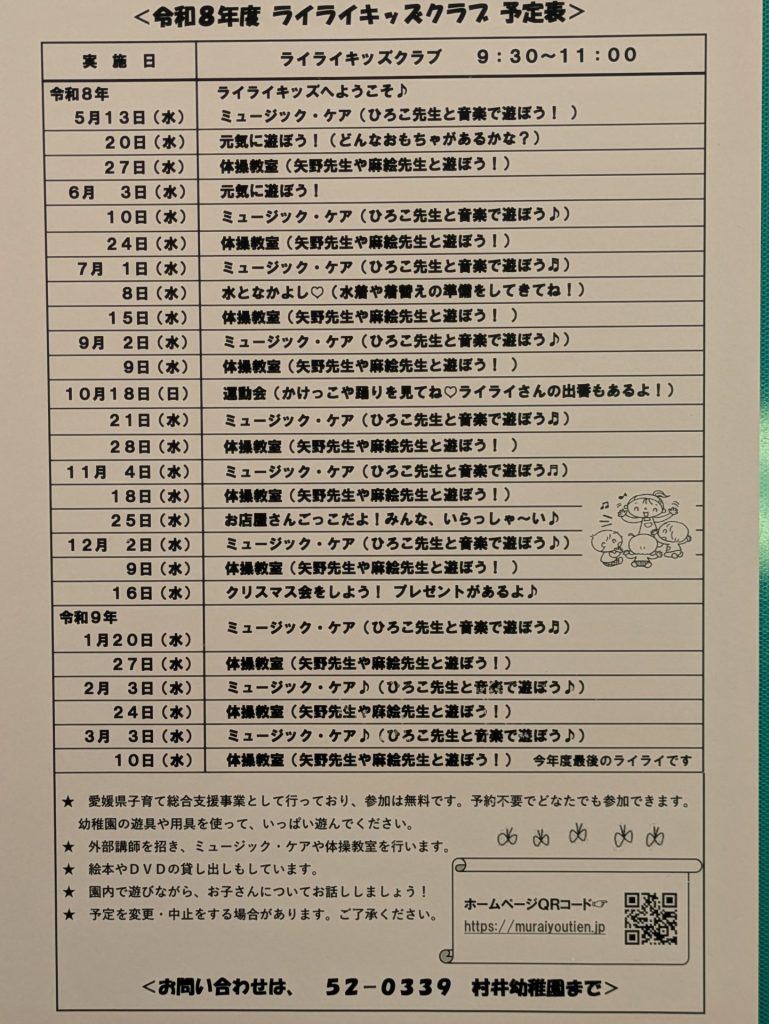 ＜令和８年度 ライライキッズクラブ 予定表＞
実　施　日　　ライライキッズクラブ　９：３０～１１：００
令和８年　　ライライキッズへようこそ♪
５月１３日（水）　ミュージック・ケア（ひろこ先生と音楽で遊ぼう！ ）
２０日（水）　元気に遊ぼう！（どんなおもちゃがあるかな？）
２７日（水）　体操教室（矢野先生や麻絵先生と遊ぼう！）
６月　３日（水）　元気に遊ぼう！
１０日（水）　ミュージック・ケア（ひろこ先生と音楽で遊ぼう♪）
２４日（水）　体操教室（矢野先生や麻絵先生と遊ぼう！）
７月　１日（水）　ミュージック・ケア（ひろこ先生と音楽で遊ぼう♫）
８日（水）　水となかよし♡（水着や着替えの準備をしてきてね！）
１５日（水）　体操教室（矢野先生や麻絵先生と遊ぼう！ ）
９月　２日（水）　ミュージック・ケア（ひろこ先生と音楽で遊ぼう♪）
９日（水）　体操教室（矢野先生や麻絵先生と遊ぼう！ ）
１０月１８日（日）　運動会（かけっこや踊りを見てね♡ライライさんの出番もあるよ！）
２１日（水）　ミュージック・ケア（ひろこ先生と音楽で遊ぼう♫）
２８日（水）　体操教室（矢野先生や麻絵先生と遊ぼう！ ）
１１月　４日（水）　ミュージック・ケア（ひろこ先生と音楽で遊ぼう♬）
１８日（水）　体操教室（矢野先生や麻絵先生と遊ぼう！）
２５日（水）　お店屋さんごっこだよ！みんな、いらっしゃ～い♪
１２月　２日（水）　ミュージック・ケア（ひろこ先生と音楽で遊ぼう♪）
９日（水）　体操教室（矢野先生や麻絵先生と遊ぼう！ ）
１６日（水）　クリスマス会をしよう！ プレゼントがあるよ♪
令和９年
１月２０日（水）　ミュージック・ケア（ひろこ先生と音楽で遊ぼう♫）
２７日（水）　体操教室（矢野先生や麻絵先生と遊ぼう！）
２月　３日（水）　ミュージック・ケア♪（ひろこ先生と音楽で遊ぼう♪）
２４日（水）　体操教室（矢野先生や麻絵先生と遊ぼう！）
３月　３日（水）　ミュージック・ケア♪（ひろこ先生と音楽で遊ぼう♪）
１０日（水）　体操教室（矢野先生や麻絵先生と遊ぼう！）　今年度最後のライライです
★　愛媛県子育て総合支援事業として行っており、参加は無料です。予約不要でどなたでも参加できます。
幼稚園の遊具や用具を使って、いっぱい遊んでください。
★　外部講師を招き、ミュージック・ケアや体操教室を行います。
★　絵本やＤＶＤの貸し出しもしています。
★　園内で遊びながら、お子さんについてお話ししましょう！
★　予定を変更・中止をする場合があります。ご了承ください。
ホームページQRコード☞
https://muraiyoutien.jp
＜お問い合わせは、　５２－０３３９　村井幼稚園まで＞